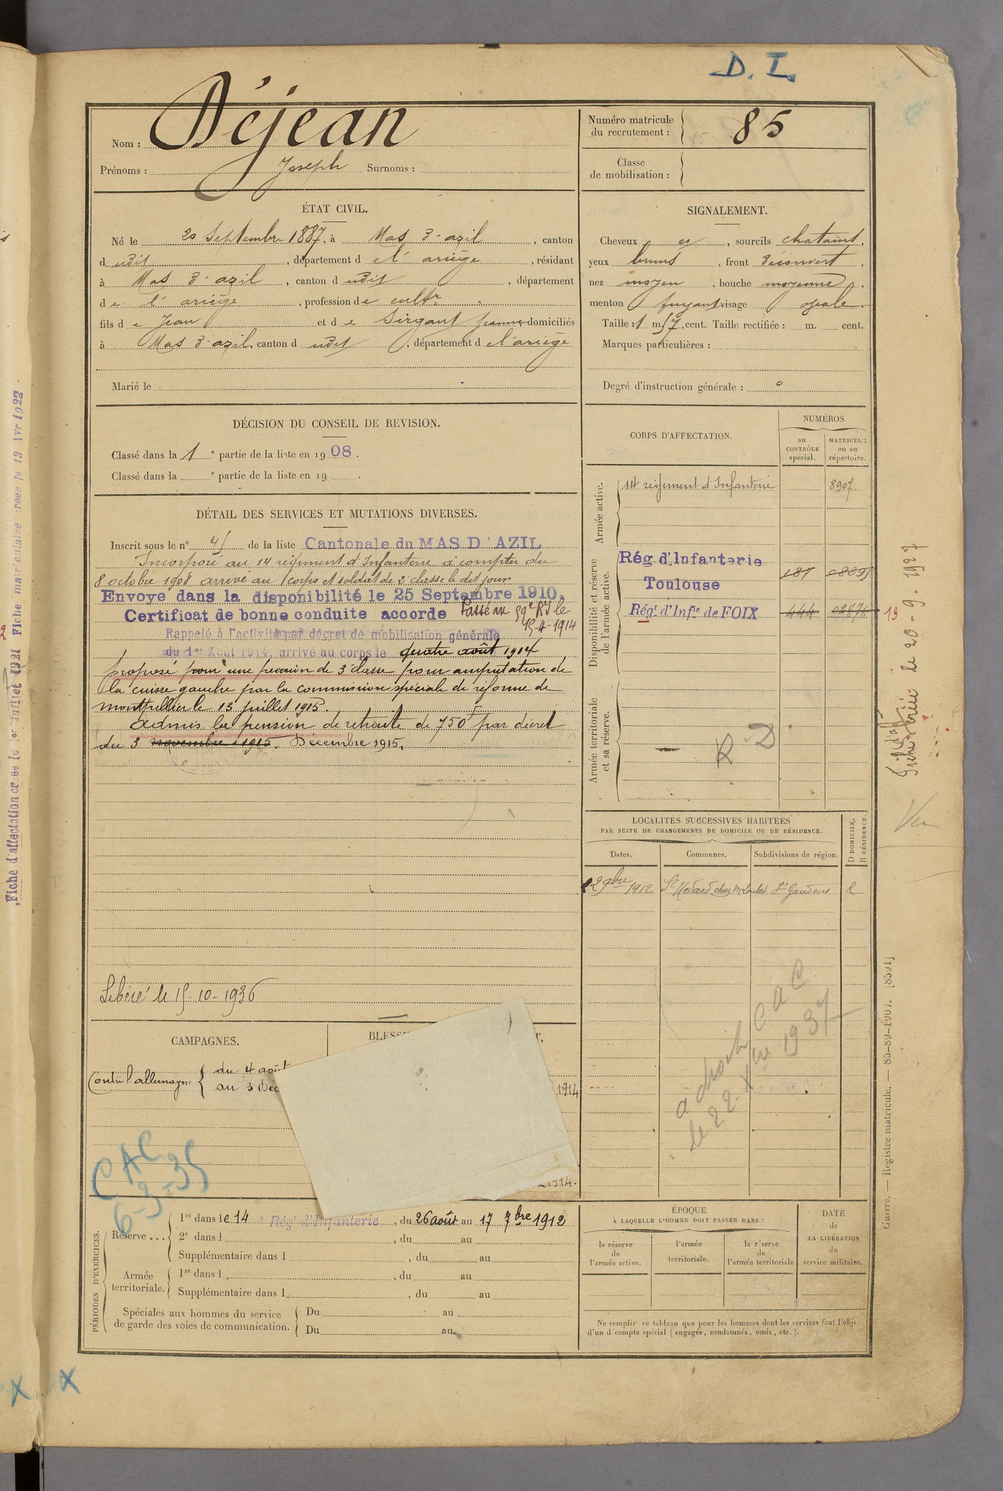 D. I.
Nom : Déjean
Prénoms : Joseph Surnoms :
Numéro matricule
du recrutement : 85
Classe
de mobilisation :
ÉTAT CIVIL.
Né le 20 Septembre 1887, à Mas d'azil, canton
d udit, département d e l'ariège, résidant
à Mas d'azil, canton d udit, département
d e l'ariège, profession d e cultr.
fils d e Jean et d e Sirgant Jeanne domiciliés
à Mas d'azil, canton d udit, département d e l'ariège
Marié le
SIGNALEMENT.
Cheveux es, sourcils chatains,
yeux bruns, front découvert,
nez moyen, bouche moyenne,
menton fuyant visage ovale
Taille : 1 m. 57 cent. Taille rectifiée : m. cent.
Marques particulières :
Degré d'instruction générale :
DÉCISION DU CONSEIL DE REVISION.
Classé dans la 1e partie de la liste en 1908.
Classé dans la e partie de la liste en 19 .
DÉTAIL DES SERVICES ET MUTATIONS DIVERSES.
Inscrit sous le n° 45 de la liste Cantonale du MAS D'AZIL
Incorporé au 14 régiment d'Infanterie à compter du
8 octobre 1908 arrivé au corps et soldat de 2 classe le dit jour
Envoyé dans la disponibilité le 25 Septembre 1910.
Certificat de bonne conduite accordé Passé au 59e RI le
15-4-1914
Rappelé à l'activité par décret de mobilisation générale
du 1er Août 1914, arrivé au corps le quatre août 1914
proposé pour une pension de 3e classe pour amputation de
la cuisse gauche par la commission spéciale de réforme de
montpellier le 13 juillet 1915.
Admis la pension de retraite de 750 F par décret
du 3 novembre 1915. Décembre 1915.
Libéré le 15-10-1936
CORPS D'AFFECTATION.
NUMÉROS
au
CONTRÔLE
spécial.
MATRICULE
ou au
répertoire.
Armée active.
14 régiment d'Infanterie 8907
Disponibilité et réserve
de l'armée active.
Rég. d'Infanterie
Toulouse
Rég. d'Infie de FOIX 444
Armée territoriale
et sa réserve.
R. D
LOCALITÉS SUCCESSIVES HABITÉES
PAR SUITE DE CHANGEMENTS DE DOMICILE OU DE RÉSIDENCE.
Dates. Communes. Subdivisions de région. D DOMICILE, R RÉSIDENCE.
2 9bre 1912 St Médard St Gaudens R
à droit CAC
le 22 Xbre 1937
CAMPAGNES.
Contre l'allemagne du 4 août
au 3 Déc
1914
1914.
CAC
6-3-35
PÉRIODES D'EXERCICES.
Réserve ...
1re dans le 14e Rég. d'Infanterie, du 26 août au 17 7bre 1912
2e dans l , du au
Supplémentaire dans l , du au
Armée
territoriale.
1re dans l , du au
Supplémentaire dans l , du au
Spéciales aux hommes du service
de garde des voies de communication.
Du au
Du au
ÉPOQUE
À LAQUELLE L'HOMME DOIT PASSER DANS :
la réserve
de
l'armée active.
l'armée
territoriale.
la réserve
de
l'armée territoriale
DATE
de
LA LIBÉRATION
du
service militaire.
Ne remplir ce tableau que pour les hommes dont les services font l'objet
d'un décompte spécial (engagés, condamnés, omis, etc.).
Guerre. — Registre matricule.
le 20-9-1927
Vu
X X